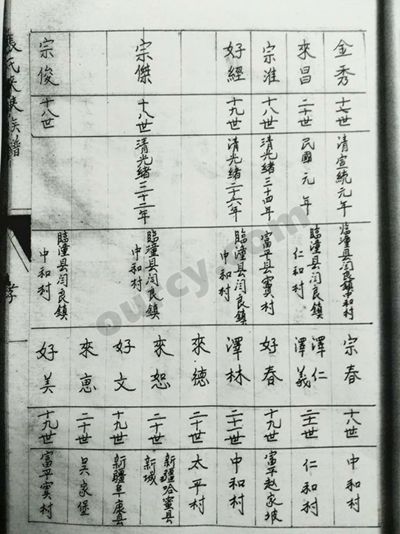 金秀
十七世
清宣統元年
臨潼縣閆良鎮中和村
來昌
二十世
民國元年
臨潼縣閆良鎮
仁和村
宗淮
十八世
清光緒三十四年
富平縣竇村
好經
十九世
清光緒二十六年
臨潼縣閆良鎮
中和村
宗傑
十八世
清光緒三十二年
臨潼縣閆良鎮
中和村
宗俊
十八世
臨潼縣閆良鎮
中和村
宗春
十八世
中和村
澤仁
澤義
二十一世
仁和村
好春
十九世
富平趙家坡
澤林
二十一世
中和村
來德
二十世
太平村
來恕
二十世
新疆哈蜜縣
新城
好文
十九世
新疆阜康縣
來惠
二十世
吳家堡
好美
十九世
富平竇村
氏
族譜
孝